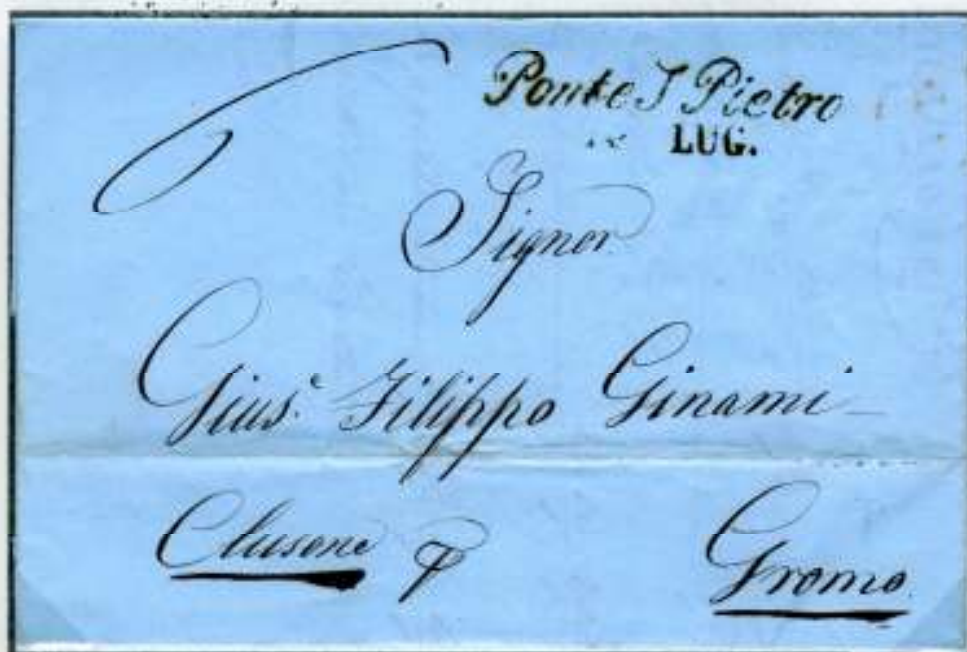 Ponte S Pietro
LUG.
Signor
Gius.e Filippo Ginami
Clusone P Gromo